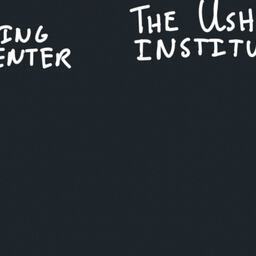 ING
ENTER
THE USH
INSTITU